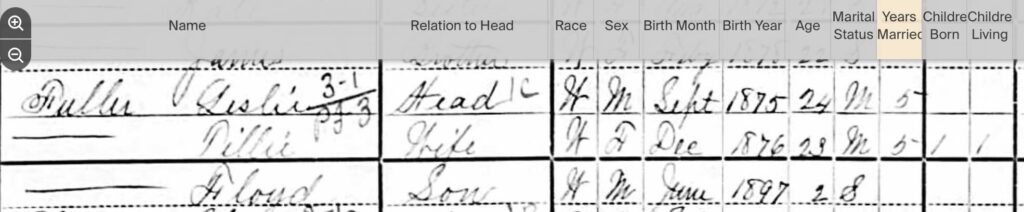 Name Relation to Head Race Sex Birth Month Birth Year Age Marital Status Years Married Childre Born Childre Living
Fuller Leslie 3-1 Head W M Sept 1875 24 M 5
Wife W F Dec 1876 23 M 5 1 1
Floyd Son W M June 1897 2 S